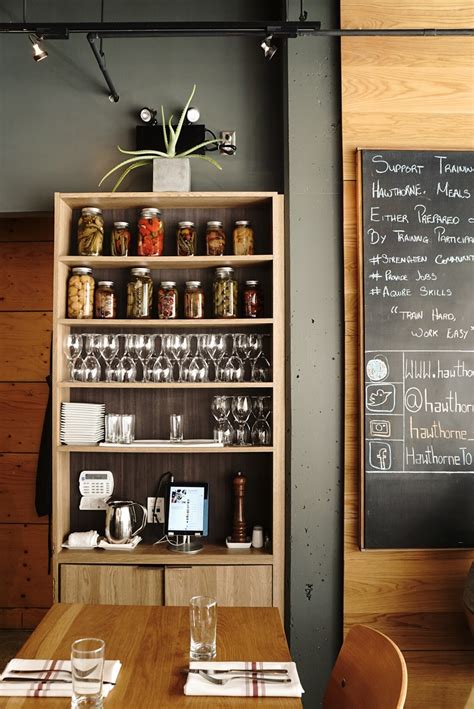 Support Training
Hawthorne. Meals
Either Prepared o
By Training Participa
#Strengthen Communit
#Provide Jobs
#Aquire Skills
"Train Hard,
Work Easy"
www.hawtho
@hawthor
hawthorne
HawthorneTo